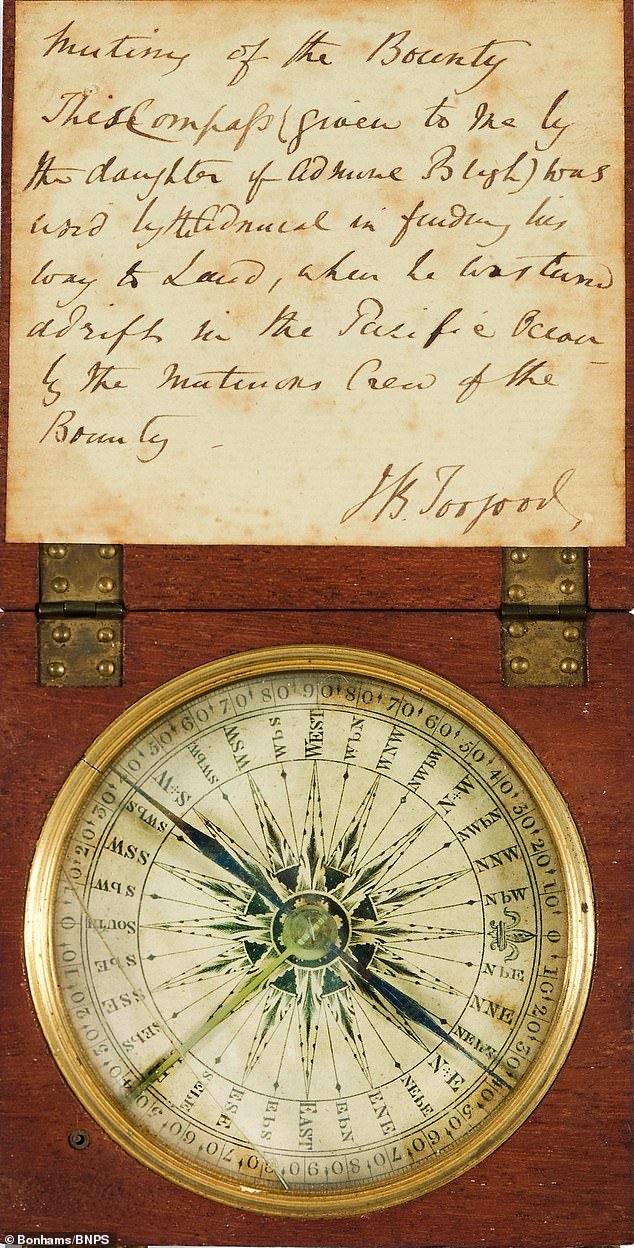 Mutiny of the Bounty
This Compass (given to me by
the daughter of Admiral Bligh) was
used by the Admiral in finding his
way to Land, when he was turned
adrift in the Pacific Ocean
by the Mutinous Crew of the
Bounty
J B. Toogood,
WEST
WbN
WNW
NWbW
N+W
NWbN
NNW
NbW
NbE
NNE
NEbN
N+E
NEbE
ENE
EbN
EAST
EbS
ESE
SEbE
SEbS
SSE
SbE
SOUTH
SbW
SSW
SWbS
S+W
SWbW
WSW
SbW
© Bonhams/BNPS